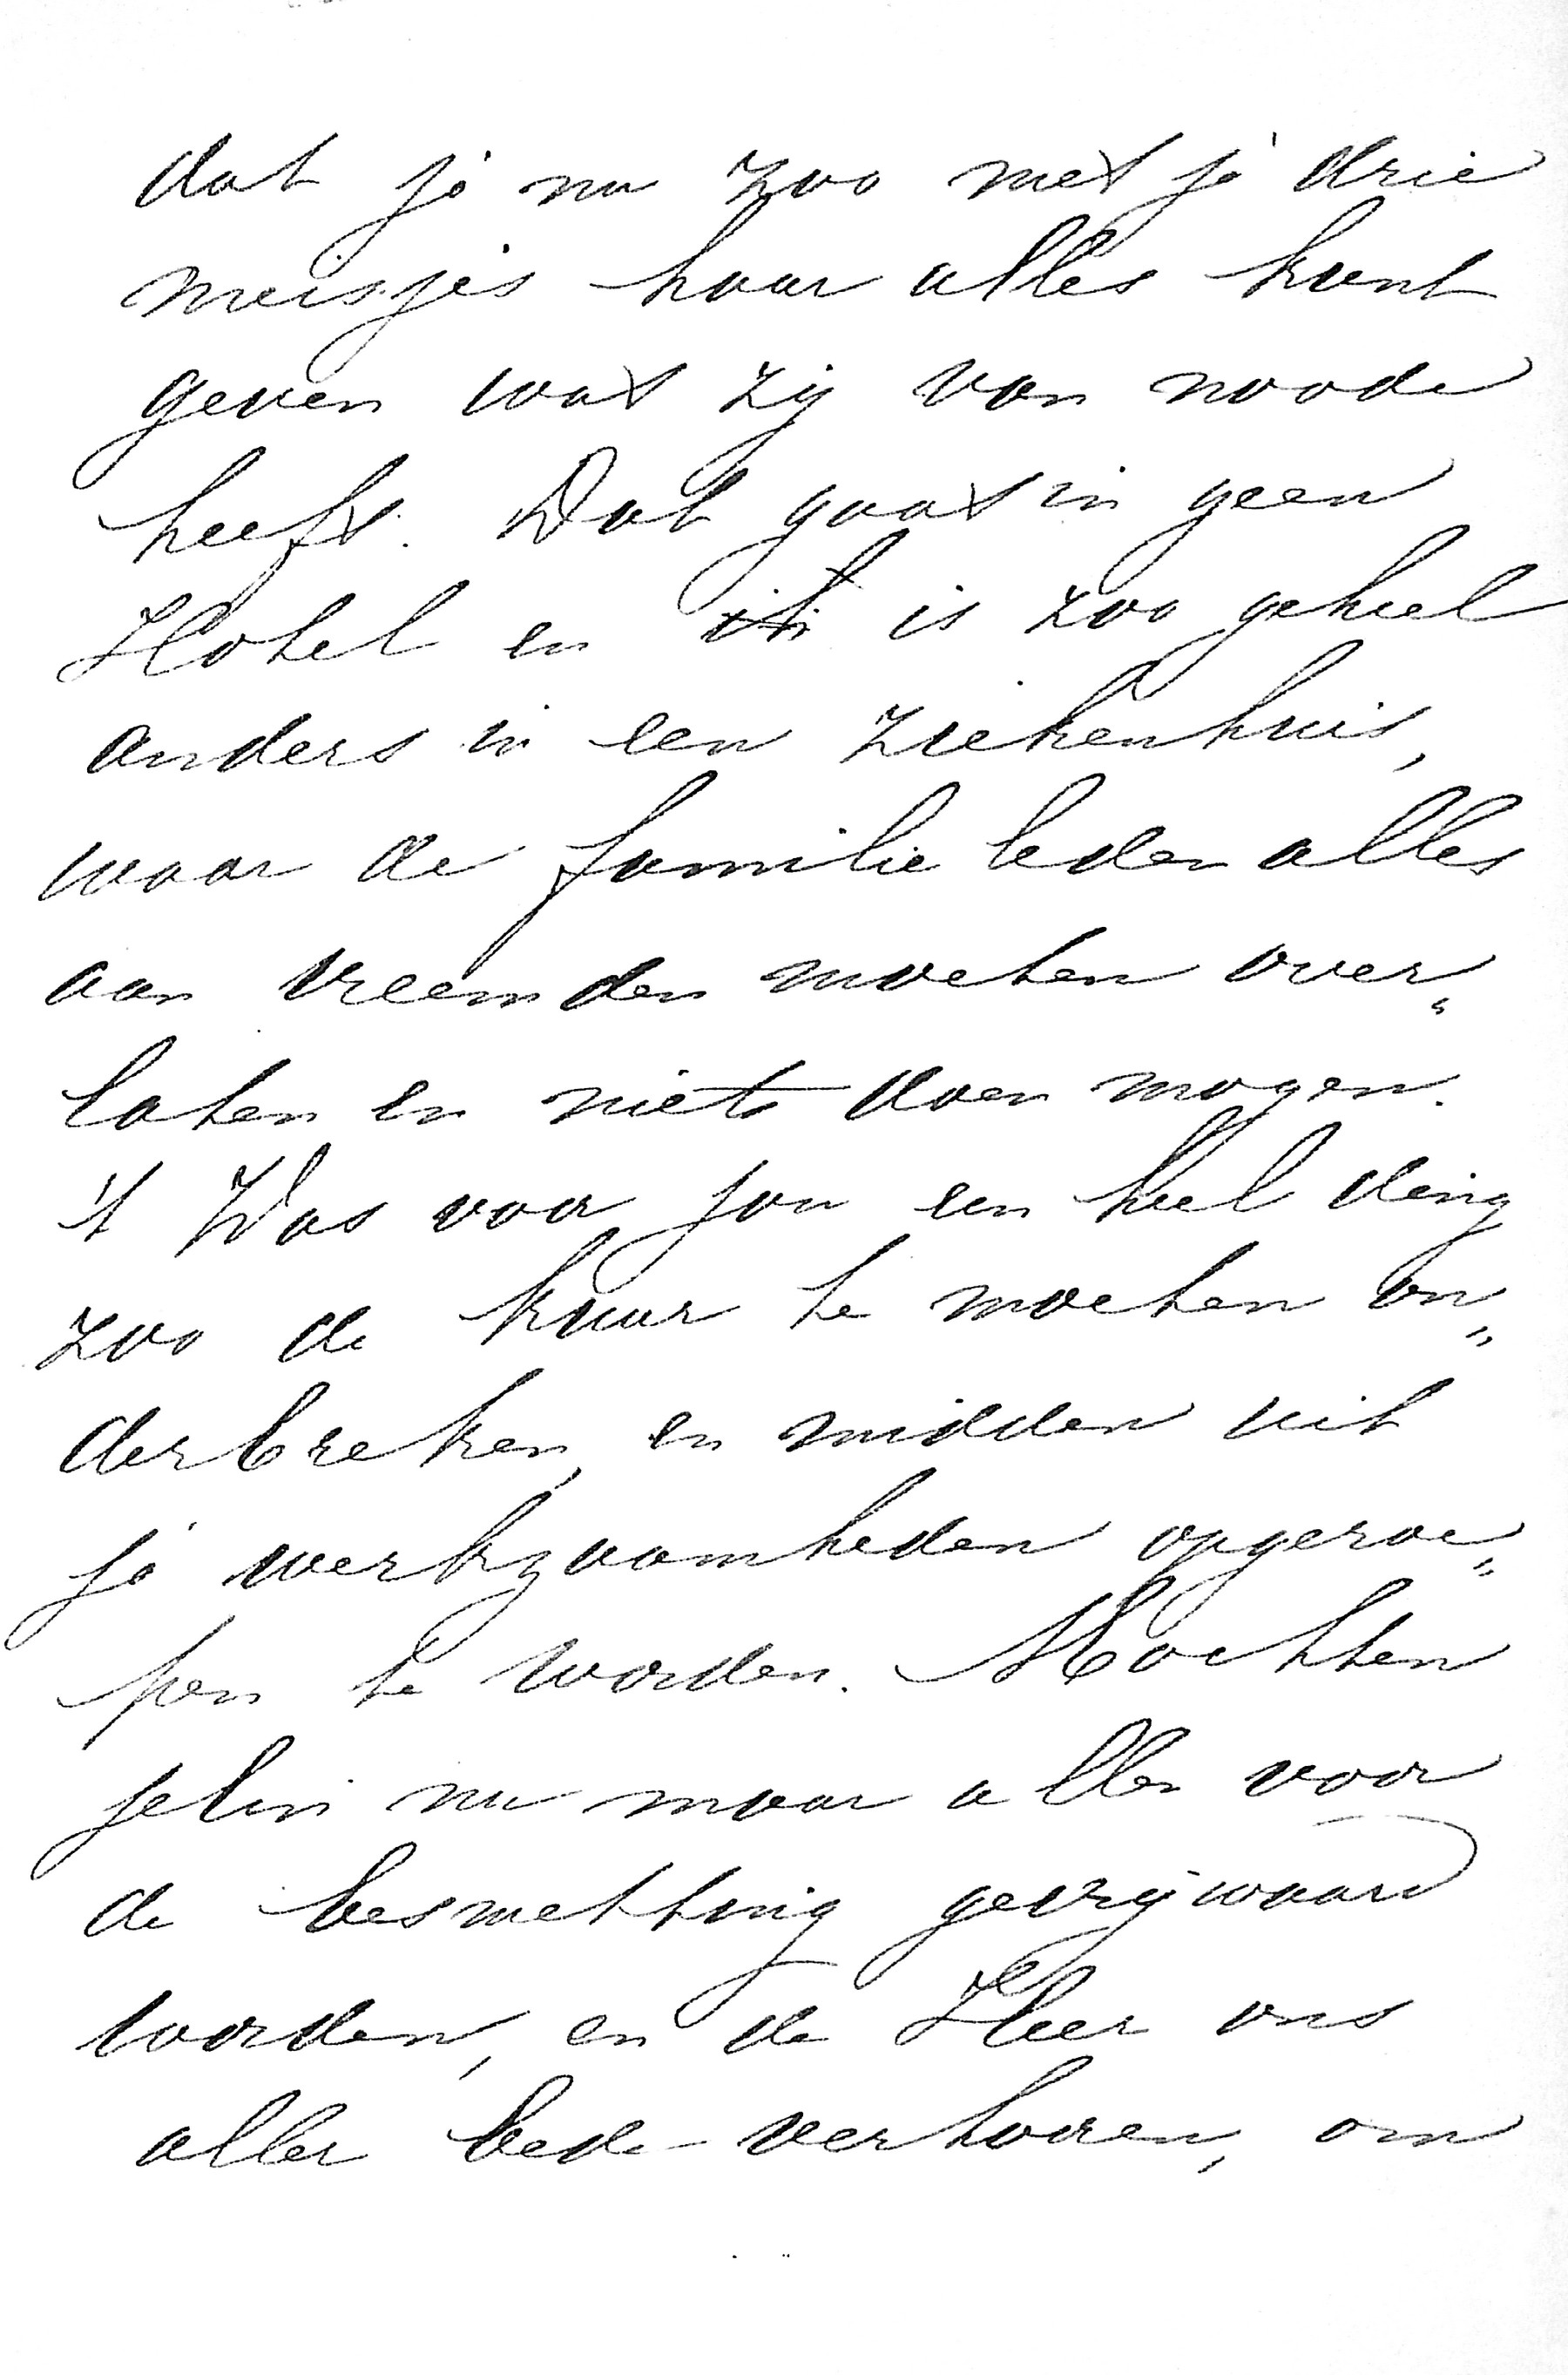 dat je nu zoo met je drie
meisjes haar alles kunt
geven wat zij van noode
heeft. Dat gaat in geen
Hotel en 't is zoo geheel
anders in een Ziekenhuis,
waar de familie leden alles
aan vreemden moeten over„
laten en niets doen mogen.
't Was voor jou een heel ding
zoo de kuur te moeten on„
derbreken, en midden uit
je werkzaamheden opgeroe„
pen te worden. Mochten
jelui nu maar allen voor
de besmetting gevrijwaard
worden, en de Heer ons
aller bede verhooren, om